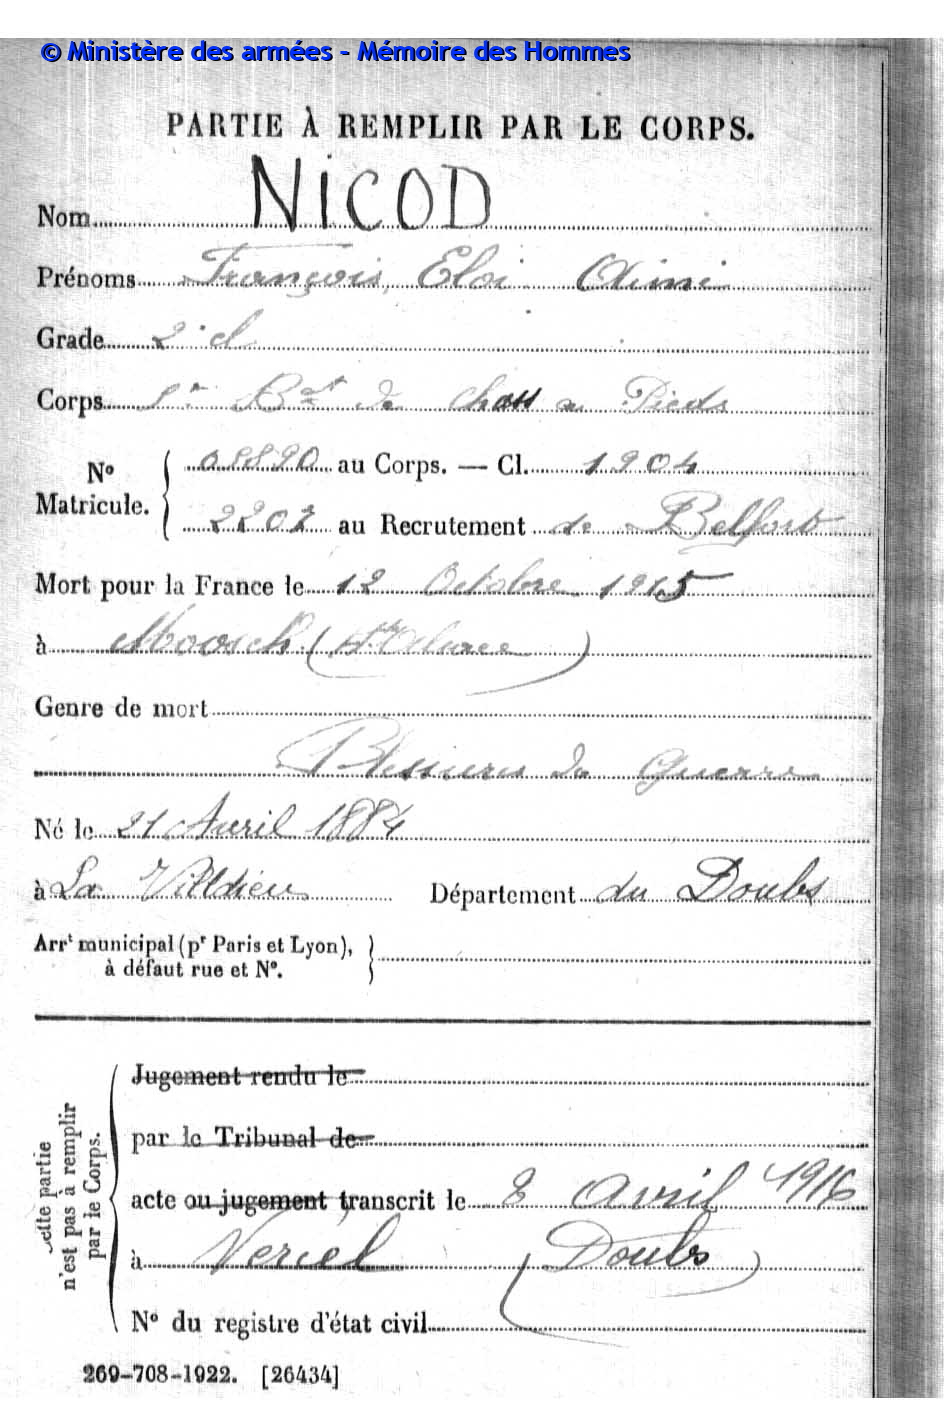 © Ministère des armées - Mémoire des Hommes
PARTIE À REMPLIR PAR LE CORPS.
Nom NICOD
Prénoms François, Eloi Aimé
Grade 2e cl
Corps Bat de Chass à Pieds
No Matricule. 08890 au Corps. — Cl. 1904
2202 au Recrutement de Belfort
Mort pour la France le 12 Octobre 1915
à Moosch (Hte Alsace)
Genre de mort
Blessures de Guerre
Né le 21 Avril 1884
à La Villdieu Département du Doubs
Arrt municipal (pr Paris et Lyon),
à défaut rue et No.
Cette partie
n'est pas à remplir
par le Corps.
Jugement rendu le
par le Tribunal de
acte ou jugement transcrit le 8 Avril 1916
à Vercel (Doubs)
No du registre d'état civil
269-708-1922. [26434]